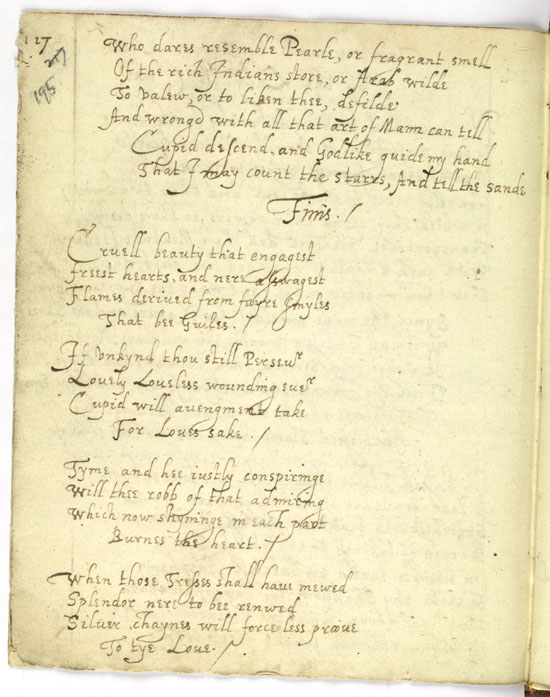 127
207
195
Who dares resemble Pearle, or fragrant smell
Of the rich Indians store, or Arab wilde
To valew, or to liken thee, defilde
And wrongd with all that art of Mann can tell
Cupid descend, and Godlike guide my hand
That I may count the starrs, And tell the sande
Finis. /
Cruell beauty that engagest
freest hearts, and nere asswagest
Flames derived from fayre smyles
That bee Guiles. /
If Vnkynd thou still Persevr
Lovely Loveless wounding ever
Cupid will avengment take
For Loves sake. /
Tyme and hee iustly conspiringe
Will thee robb of that admiring
Which now shyninge in each part
Burnes the heart. /
When those Tresses shall have mewed
Splendor nere to bee renwed
Silver chaynes will force less prœve
To tye Love. /